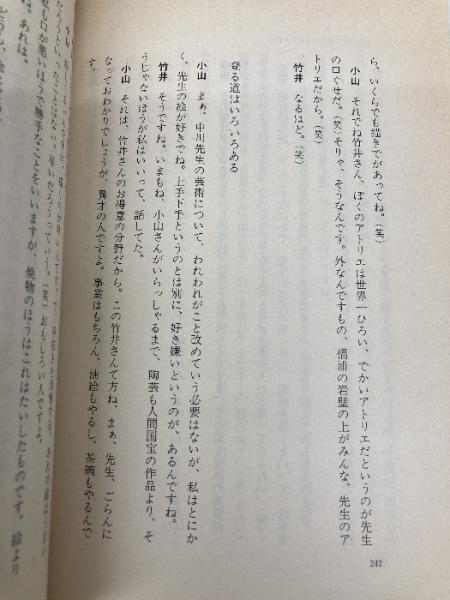 ら、いくらでも描きでがあってね。(笑)
小山　それでね竹井さん、ぼくのアトリエは世界一ひろい、でかいアトリエだというのが先生
の口ぐせだ。(笑)そりゃ、そうなんです。外なんですもの、福浦の岩壁の上がみんな、先生のア
トリエだから。(笑)
竹井　なるほど。(笑)
登る道はいろいろある
小山　まぁ、中川先生の芸術について、われわれがこと改めていう必要はないが、私はとにか
く、先生の絵が好きでね。上手下手というのとは別に、好き嫌いというのが、あるんですね。
竹井　そうですね。いまもね、小山さんがいらっしゃるまで、陶芸も人間国宝の作品より、そ
うじゃないほうが私はいいって、話してた。
小山　それは、竹井さんのお得意の分野だから。この竹井さんて方ね、まぁ、先生、ごらんに
なっておわかりでしょうが、異才の人ですよ。事業はもちろん、油絵もやるし、茶碗もやるんで
す。
242
たことはない。早いだろうっていう。(笑)おもしろい人ですよ。
私も口が悪いほうで勝手なことをいいますが、焼物のほうはこれはたいしたものです。絵より
ね、あれは。